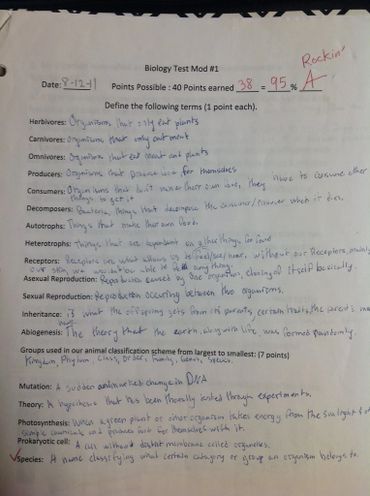 Rockin'
Biology Test Mod #1
Date: 8-12-11 Points Possible : 40 Points earned 38 = 95 % A
Define the following terms (1 point each).
Herbivores: Organisms that only eat plants
Carnivores: Organisms that only eat meat
Omnivores: Organisms that eat meat and plants
Producers: Organisms that produce food for themselves
Consumers: Organisms that don't make their own food, they have to consume other
things to get it
Decomposers: Bacteria, things that decompose the consumer/producer when it dies.
Autotrophs: Things that make their own food.
Heterotrophs: Things that are dependent on other things for food
Receptors: Receptors are what allows us to feel/see/hear, without our Receptors, mainly
our skin we wouldn't be able to feel anything
Asexual Reproduction: Reproduction caused by one organism, cloning of itself basically.
Sexual Reproduction: Reproduction occuring between two organisms.
Inheritance: is what the offspring gets from its parents, certain traits, the parent's may
have.
Abiogenesis: The theory that the earth, along with life, was formed randomly.
Groups used in our animal classification scheme from largest to smallest: (7 points)
Kingdom, Phylum, Class, Order, Family, Genus, Species.
Mutation: A sudden and marked change in DNA
Theory: A hypothesis that has been tested through experiments.
Photosynthesis: When a green plant or other organism takes energy from the sunlight &
simple chemicals and produces food for themselves with it.
Prokaryotic cell: A cell without distinct membrane called organelles.
Species: A name classifying what certain category or group an organism belongs to.